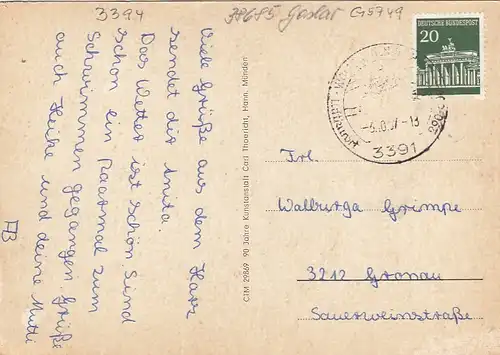 3394
38685 Goslar
G5749
DEUTSCHE BUNDESPOST
20
3391
Viele Grüße aus dem Harz
sendet dir Anita.
Das Wetter ist schön. Sind
schon ein Paarmal zum
Schwimmen gegangen. Grüße
auch Heike und deine Mutti
AB
C1M 29869 90 Jahre Kunstanstalt Carl Thoericht, Hann. Münden
Frl.
Walburga Grimpe
3212 Gronau
Sauerweinstraße